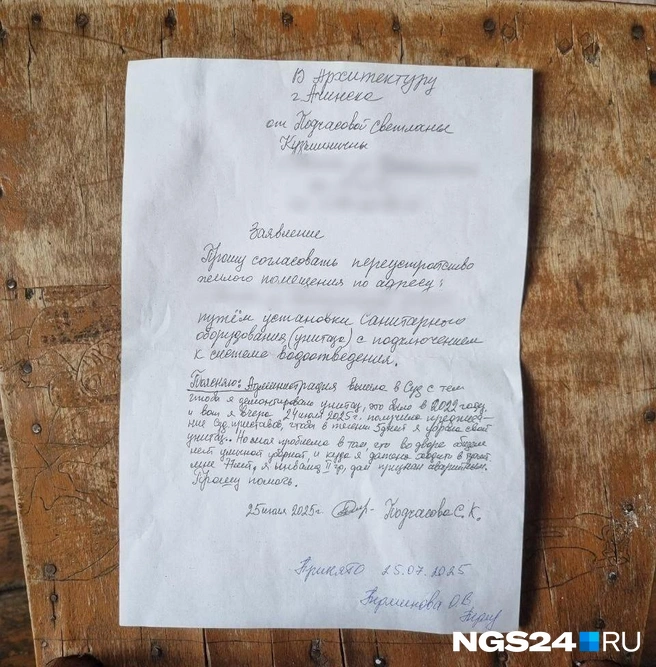 В Архитектуру
г. Ачинска
от Подчасовой Светланы
Кузьминичны
Заявление
Прошу согласовать переустройство
жилого помещения по адресу:
путём установки Санитарного
оборудования (унитаза) с подключением
к системе водоотведения.
Поясняю: Администрация вышла в Суд с тем
чтобы я демонтировала унитаз, это было в 2022 году.
и вот я вчера 24 июля 2025г. получила
суд. приставов, чтобы в течении 5 дней я убрала свой
унитаз. Но моя проблема в том, что во дворе
нет уличной уборной, и куда я должна ходить в
мне 77 лет, я инвалид II гр, дом признан аварийным.
Прошу помочь.
25 июля 2025г Подчасова С. К.
Принято 25.07.2025
О.В.
NGS24.RU